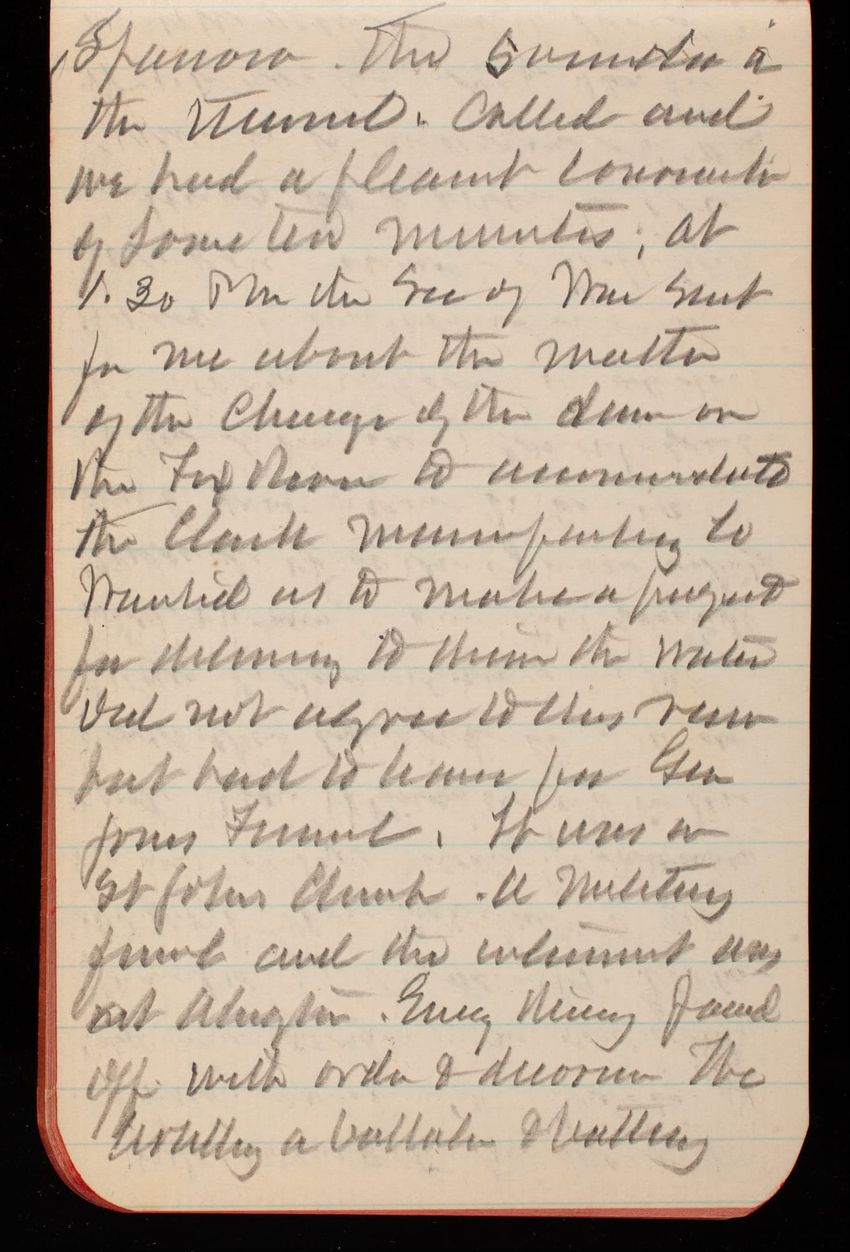 Sparrow. The
the Called and
we had a pleasant
of some ten minutes, at
1.30 PM the Sec of War sent
for me about the matter
of the Change of the dam on
the Fox River to accommodate
the Clark Co
Wanted us to make a
for to the water
did not agree to this
but had to leave for Gen
Jones Funeral. It was
St Johns Church. A Military
funeral and the interment was
at Arlington. Every thing passed
off with order & decorum The
a battalion & battery